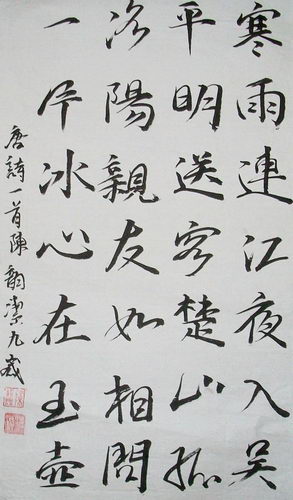 寒雨連江夜入吴
平明送客楚山孤
洛陽親友如相問
一片冰心在玉壺
唐詩一首陳韻潔九歲